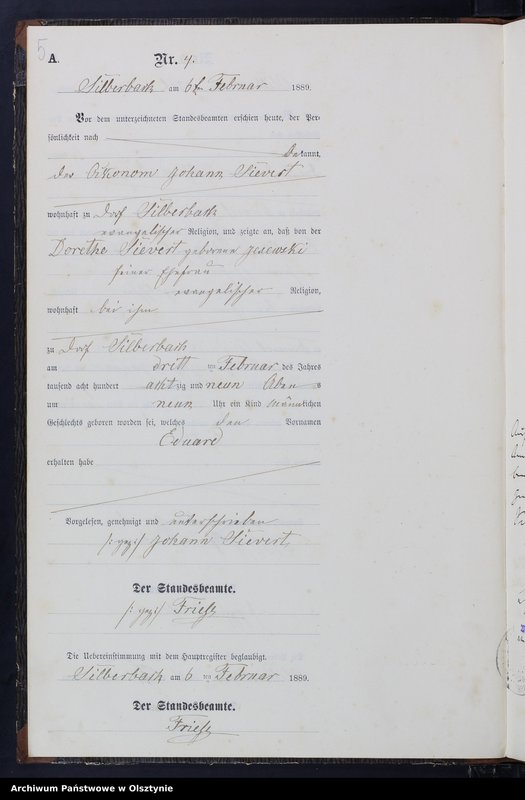 5
A.
Nr. 4.
Silberbach am 6t Februar 1889.
Vor dem unterzeichneten Standesbeamten erschien heute, der Per-
sönlichkeit nach
bekannt,
der Oekonom Johann Sievert
wohnhaft zu Dorf Silberbach
evangelischer Religion, und zeigte an, daß von der
Dorethe Sievert geborenen
seiner Ehefrau
evangelischer Religion,
wohnhaft bei ihm
zu Dorf Silberbach
am dritt ten Februar des Jahres
tausend acht hundert acht zig und neun Aben s
um neun Uhr ein Kind männlichen
Geschlechts geboren worden sei, welches den Vornamen
Eduard
erhalten habe
Vorgelesen, genehmigt und unterschrieben
/: gez:/ Johann Sievert
Der Standesbeamte.
/: gez:/
Die Uebereinstimmung mit dem Hauptregister beglaubigt.
Silberbach am 6 ten Februar 1889.
Der Standesbeamte.
Archiwum Państwowe w Olsztynie